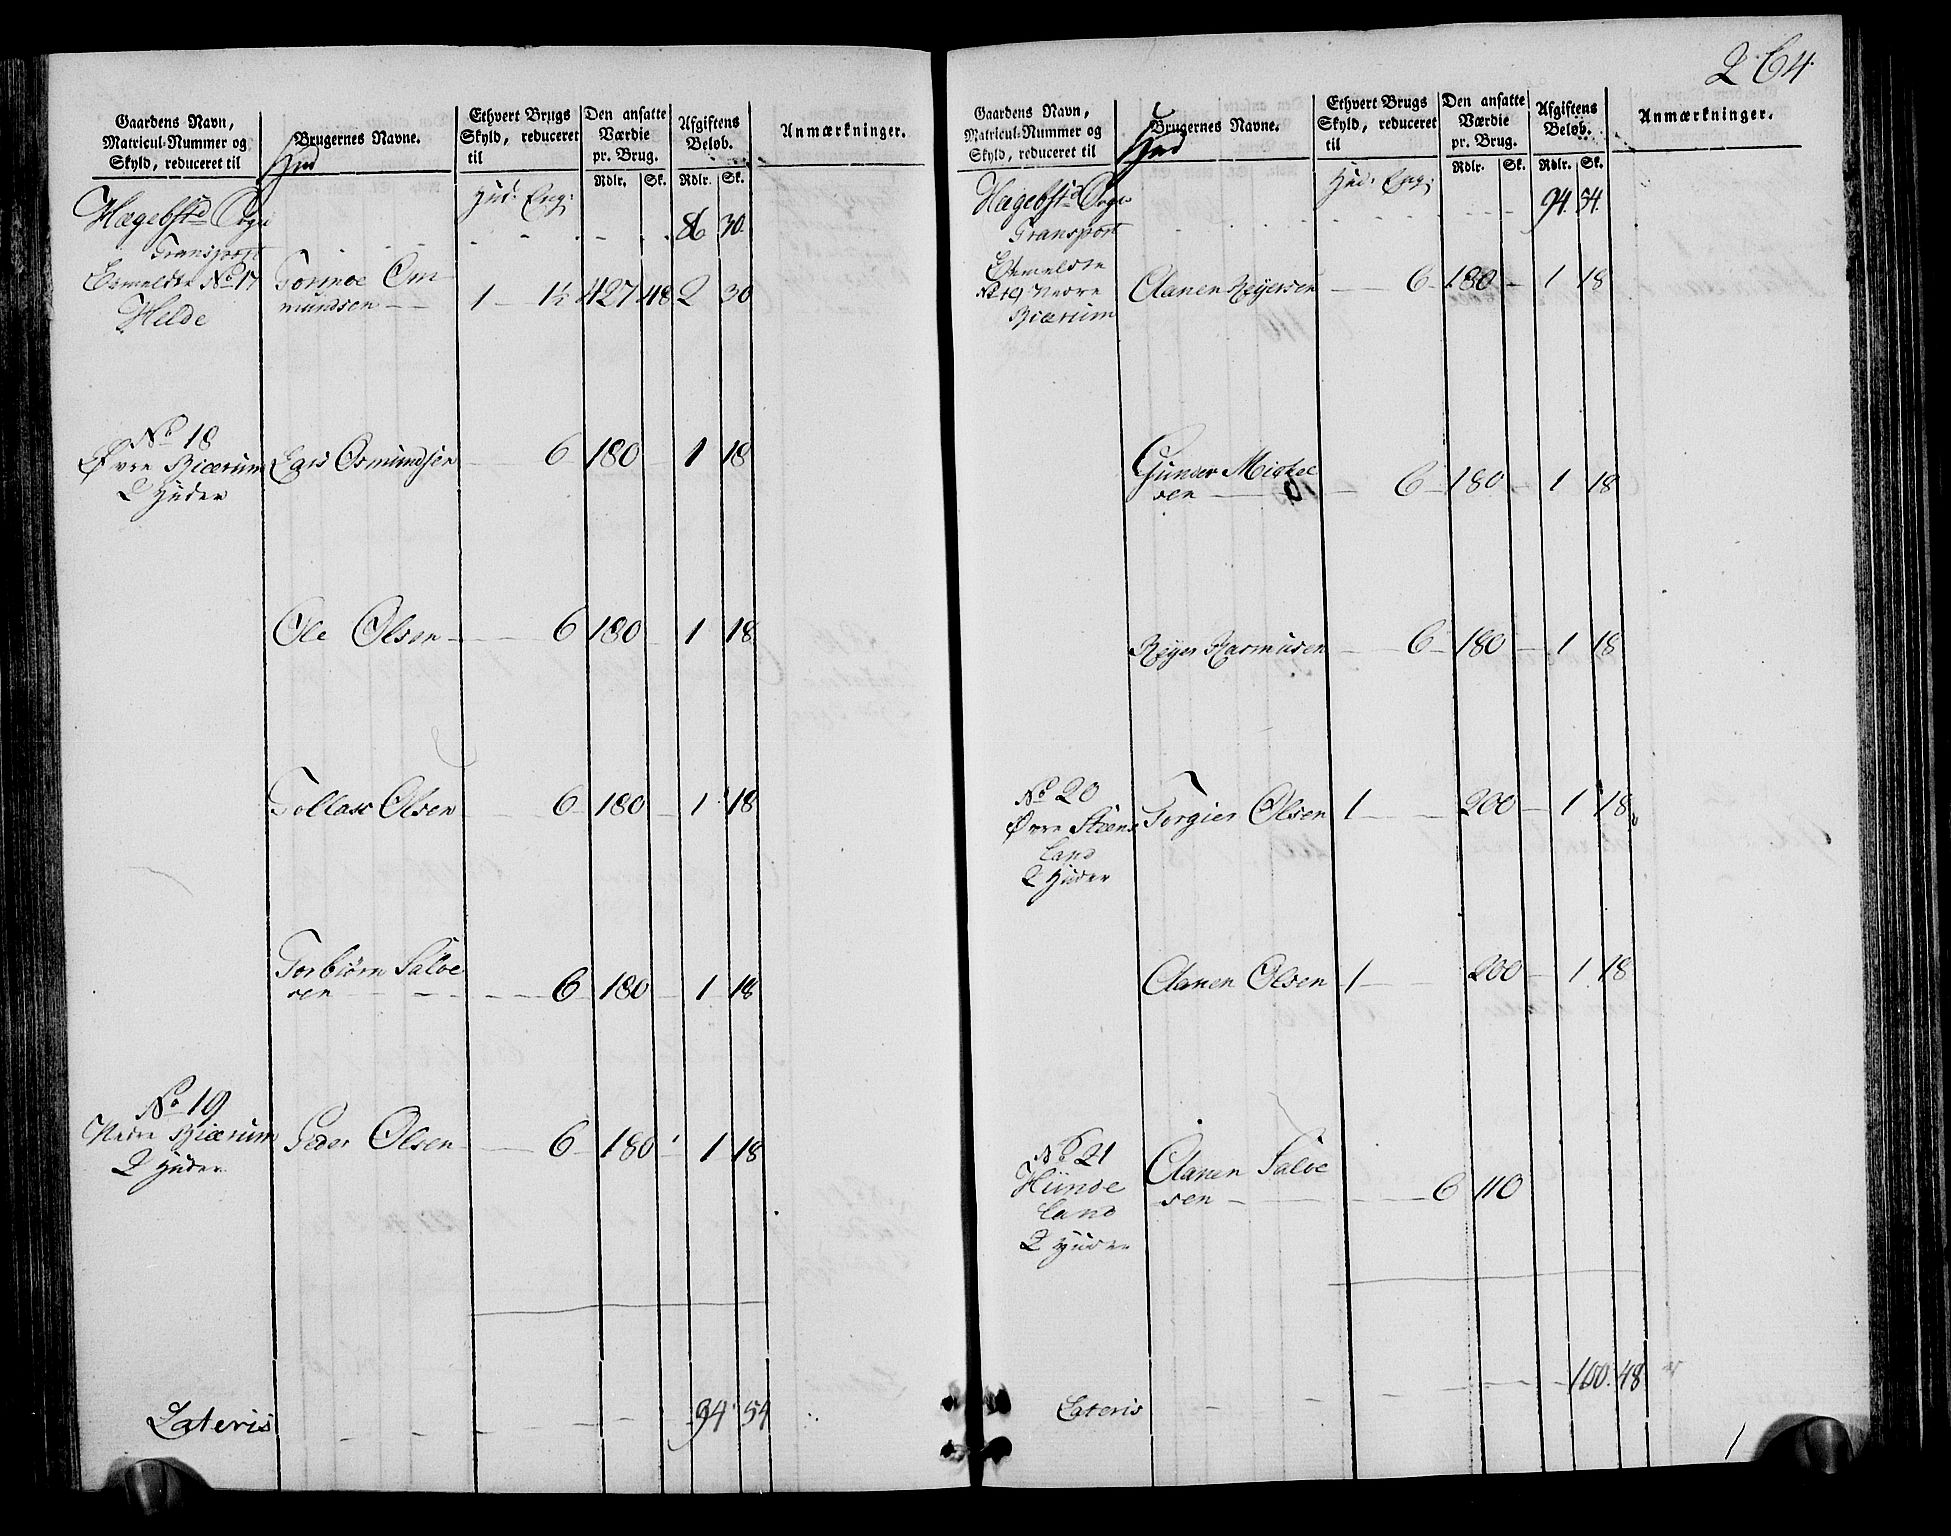 Gaardens Navn,
Matricul-Nummer og
Skyld, reduceret til
Brugernes Navne.
Ethvert Brugs
Skyld, reduceret
til
Den ansatte
Værdie
pr. Brug.
Rdlr. Sk.
Afgiftens
Beløb.
Rdlr. Sk.
Anmærkninger.
Hud: Eng:
Hægebstd Sogn
Transport 86 30.
No 17
Helde
mundsen 1 1½ 427 48 2 30
No 18
Øvre Biærum Lars Osmundsen 6 180 1 18
2 Huder
Ole Olsen 6 180 1 18
Tollass Olsen 6 180 1 18
Torbiørn Salve
sen 6 180 1 18
No 19
Nedre Biærum Peder Olsen 6 180 1 18
2 Huder
Lateris 94 54
264.
Gaardens Navn,
Matricul-Nummer og
Skyld, reduceret til
Brugernes Navne.
Ethvert Brugs
Skyld, reduceret
til
Den ansatte
Værdie
pr. Brug.
Rdlr. Sk.
Afgiftens
Beløb.
Rdlr. Sk.
Anmærkninger.
Hud: Eng:
Hægebstd Sogn 94. 54.
Transport
No 19 Nedre Aanen Reyersen 6 180 1 18
Biærum
Gunder Michel
sen 6 180 1 18
Reyer Rasmusen 6 180 1 18
No 20
Øvre Steens Torgier Olsen 1 200 1 18
land
2 Huder
Aanen Olsen 1 200 1 18
No 21
Hünde Aanen Salve
land sen 6 110
2 Huder
Lateris 100. 48